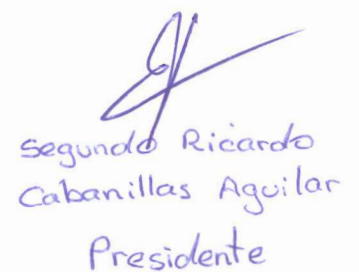 Segundo Ricardo
Cabanillas Aguilar
Presidente